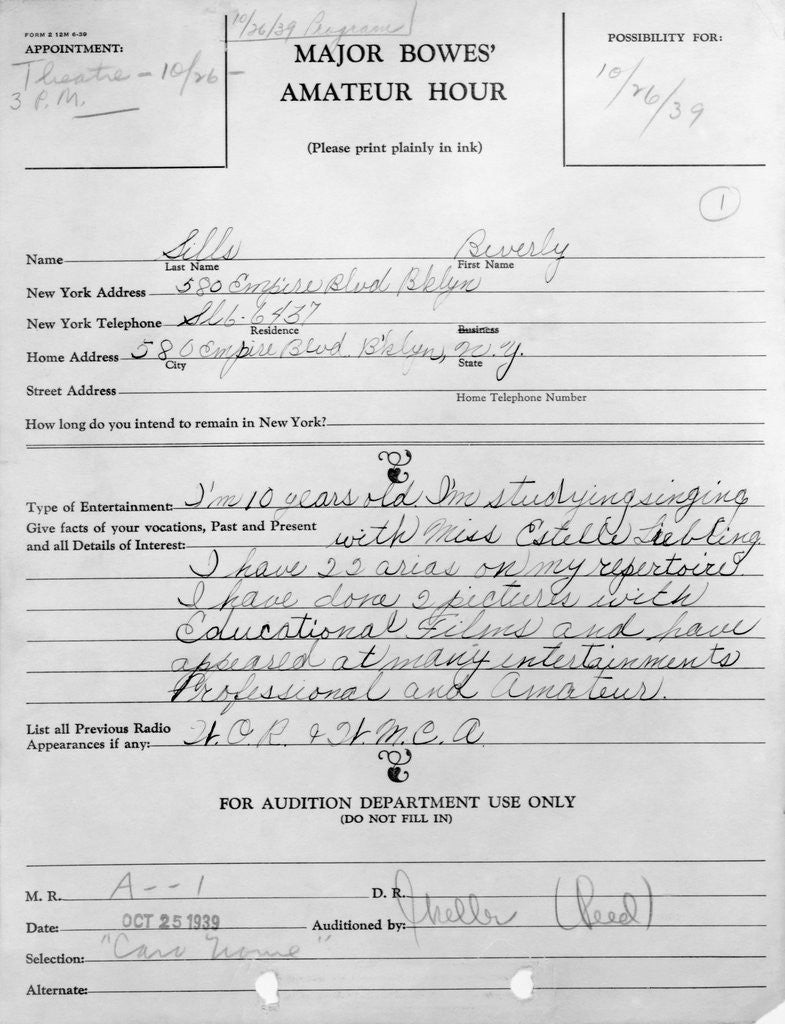 FORM 2 12M 6-39
10/26/39 Program
APPOINTMENT:
Theatre - 10/26 -
3 P.M.
MAJOR BOWES'
AMATEUR HOUR
(Please print plainly in ink)
POSSIBILITY FOR:
10/26/39
1
Name Sills Beverly
Last Name First Name
New York Address 580 Empire Blvd Bklyn
New York Telephone SL6-6437
Residence Business
Home Address 580 Empire Blvd. B'klyn, N.Y.
City State
Street Address
Home Telephone Number
How long do you intend to remain in New York?
Type of Entertainment: I'm 10 years old. I'm studying singing
Give facts of your vocations, Past and Present
and all Details of Interest: with Miss Estelle Liebling.
I have 22 arias on my repertoire.
I have done 2 pictures with
Educational Films and have
appeared at many entertainments
Professional and Amateur.
List all Previous Radio
Appearances if any: W.O.R. & W.M.C.A.
FOR AUDITION DEPARTMENT USE ONLY
(DO NOT FILL IN)
M. R. A--1 D. R.
Date: OCT 25 1939 Auditioned by: (Reed)
Selection: "Caro Nome"
Alternate: